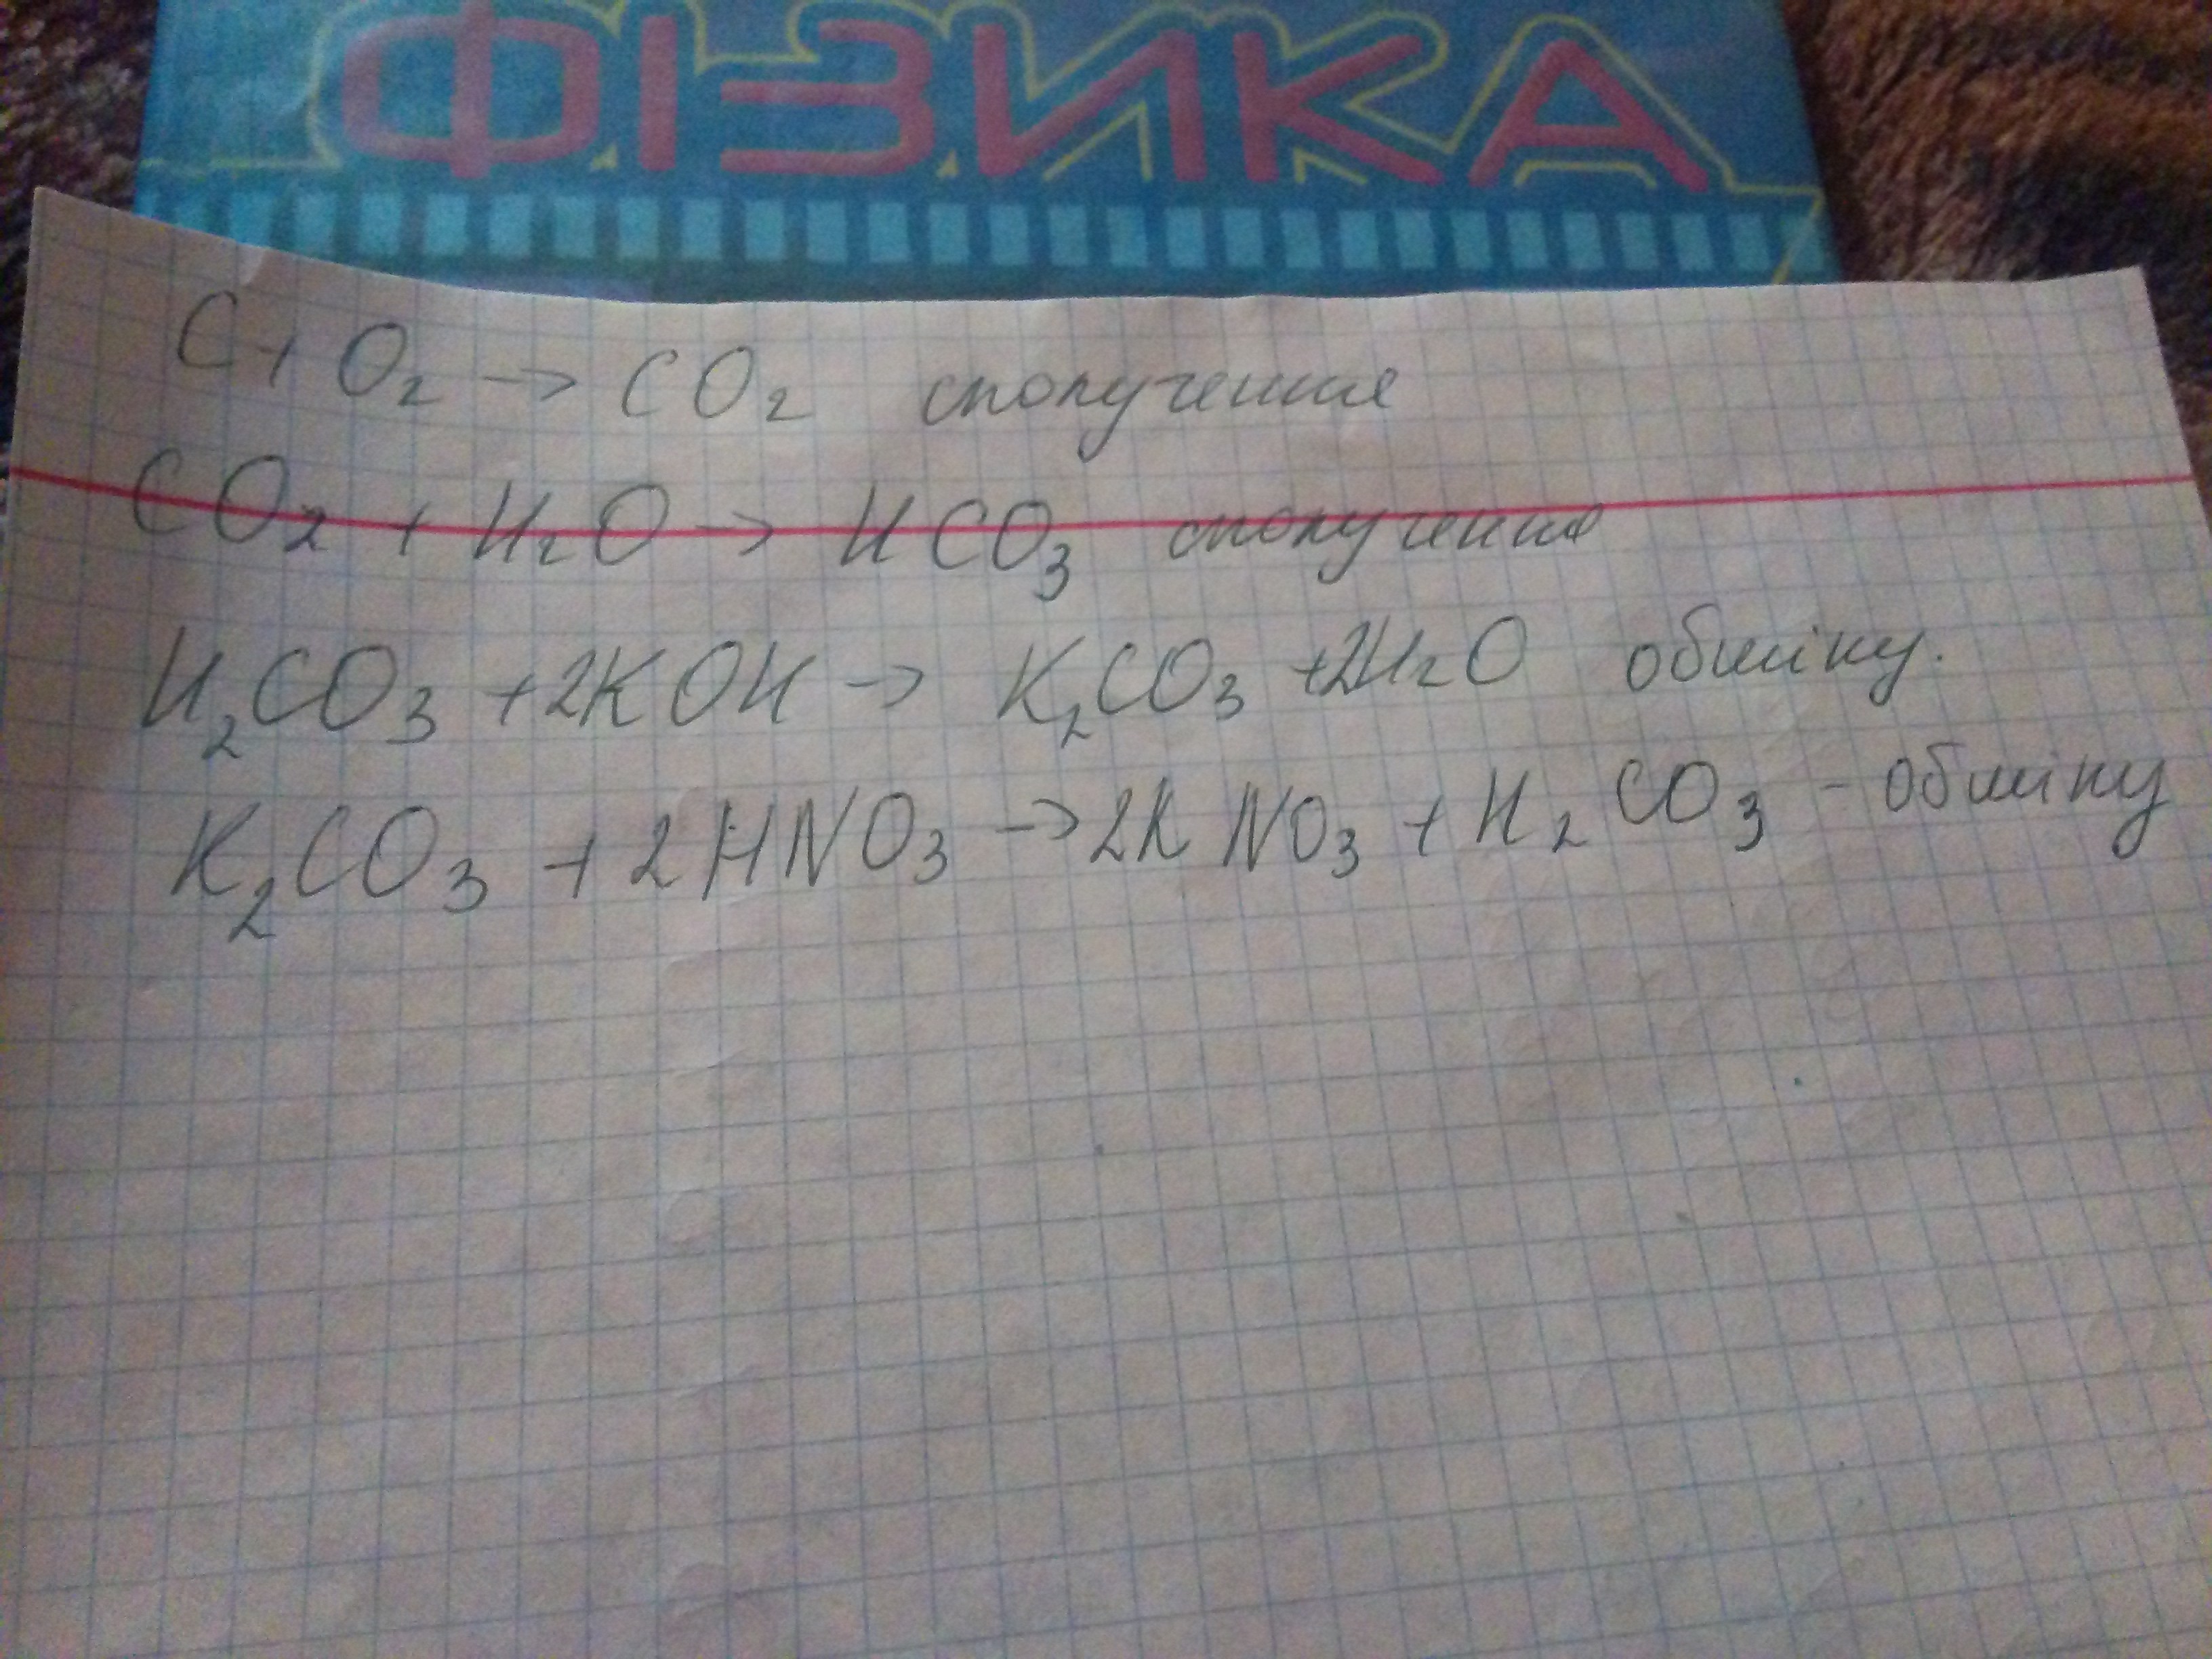 ФІЗИКА
C + O₂ → CO₂ сполучення
CO₂ + H₂O → HCO₃ сполучення
H₂CO₃ + 2KOH → K₂CO₃ + 2H₂O обміну.
K₂CO₃ + 2HNO₃ → 2KNO₃ + H₂CO₃ - обміну